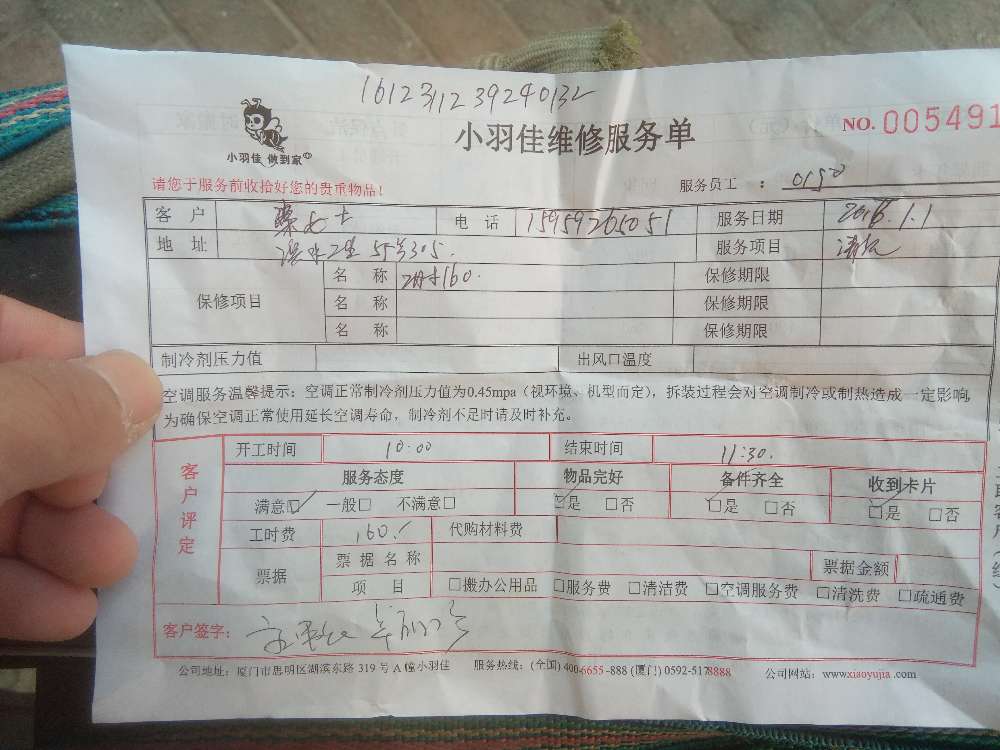 161231123924013
小羽佳 做到家
小羽佳维修服务单
NO. 005491
请您于服务前收拾好您的贵重物品!
服务员工 : 0150
客 户 女士 电 话 15959265051 服务日期 2016.1.1
地 址 55号305. 服务项目
保修项目
名 称 160. 保修期限
名 称 保修期限
名 称 保修期限
制冷剂压力值 出风口温度
空调服务温馨提示: 空调正常制冷剂压力值为0.45mpa(视环境、机型而定), 拆装过程会对空调制冷或制热造成一定影响
为确保空调正常使用延长空调寿命, 制冷剂不足时请及时补充。
客户评定
开工时间 10:00 结束时间 11:30.
服务态度 物品完好 备件齐全 收到卡片
满意☑ 一般□ 不满意□ ☑是 □否 ☑是 □否 ☑是 □否
工时费 160. 代购材料费
票据 票据名称 票据金额
项 目 □搬办公用品 □服务费 □清洁费 □空调服务费 □清洗费 □疏通费
客户签字:
公司地址: 厦门市思明区湖滨东路 319 号 A 幢小羽佳 服务热线: (全国) 400-6655-888 (厦门) 0592-5178888 公司网站: www.xiaoyujia.com